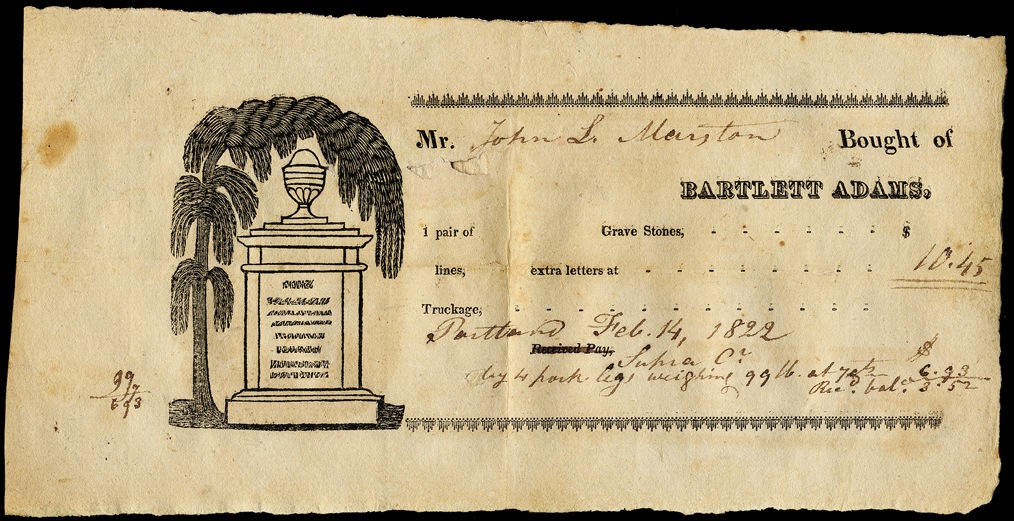 Mr. John L. Marston Bought of
BARTLETT ADAMS,
1 pair of Grave Stones, - - - - - - $
lines, extra letters at - - - - - - - - 10.45
Truckage, - - - - - - - - - - - -
Portland Feb. 14, 1822
Received Pay,
Supra Cr $
by 4 pork legs weighing 99 lb. at 7 cts 6.93
Recd. bal. 3.52
99
7
693